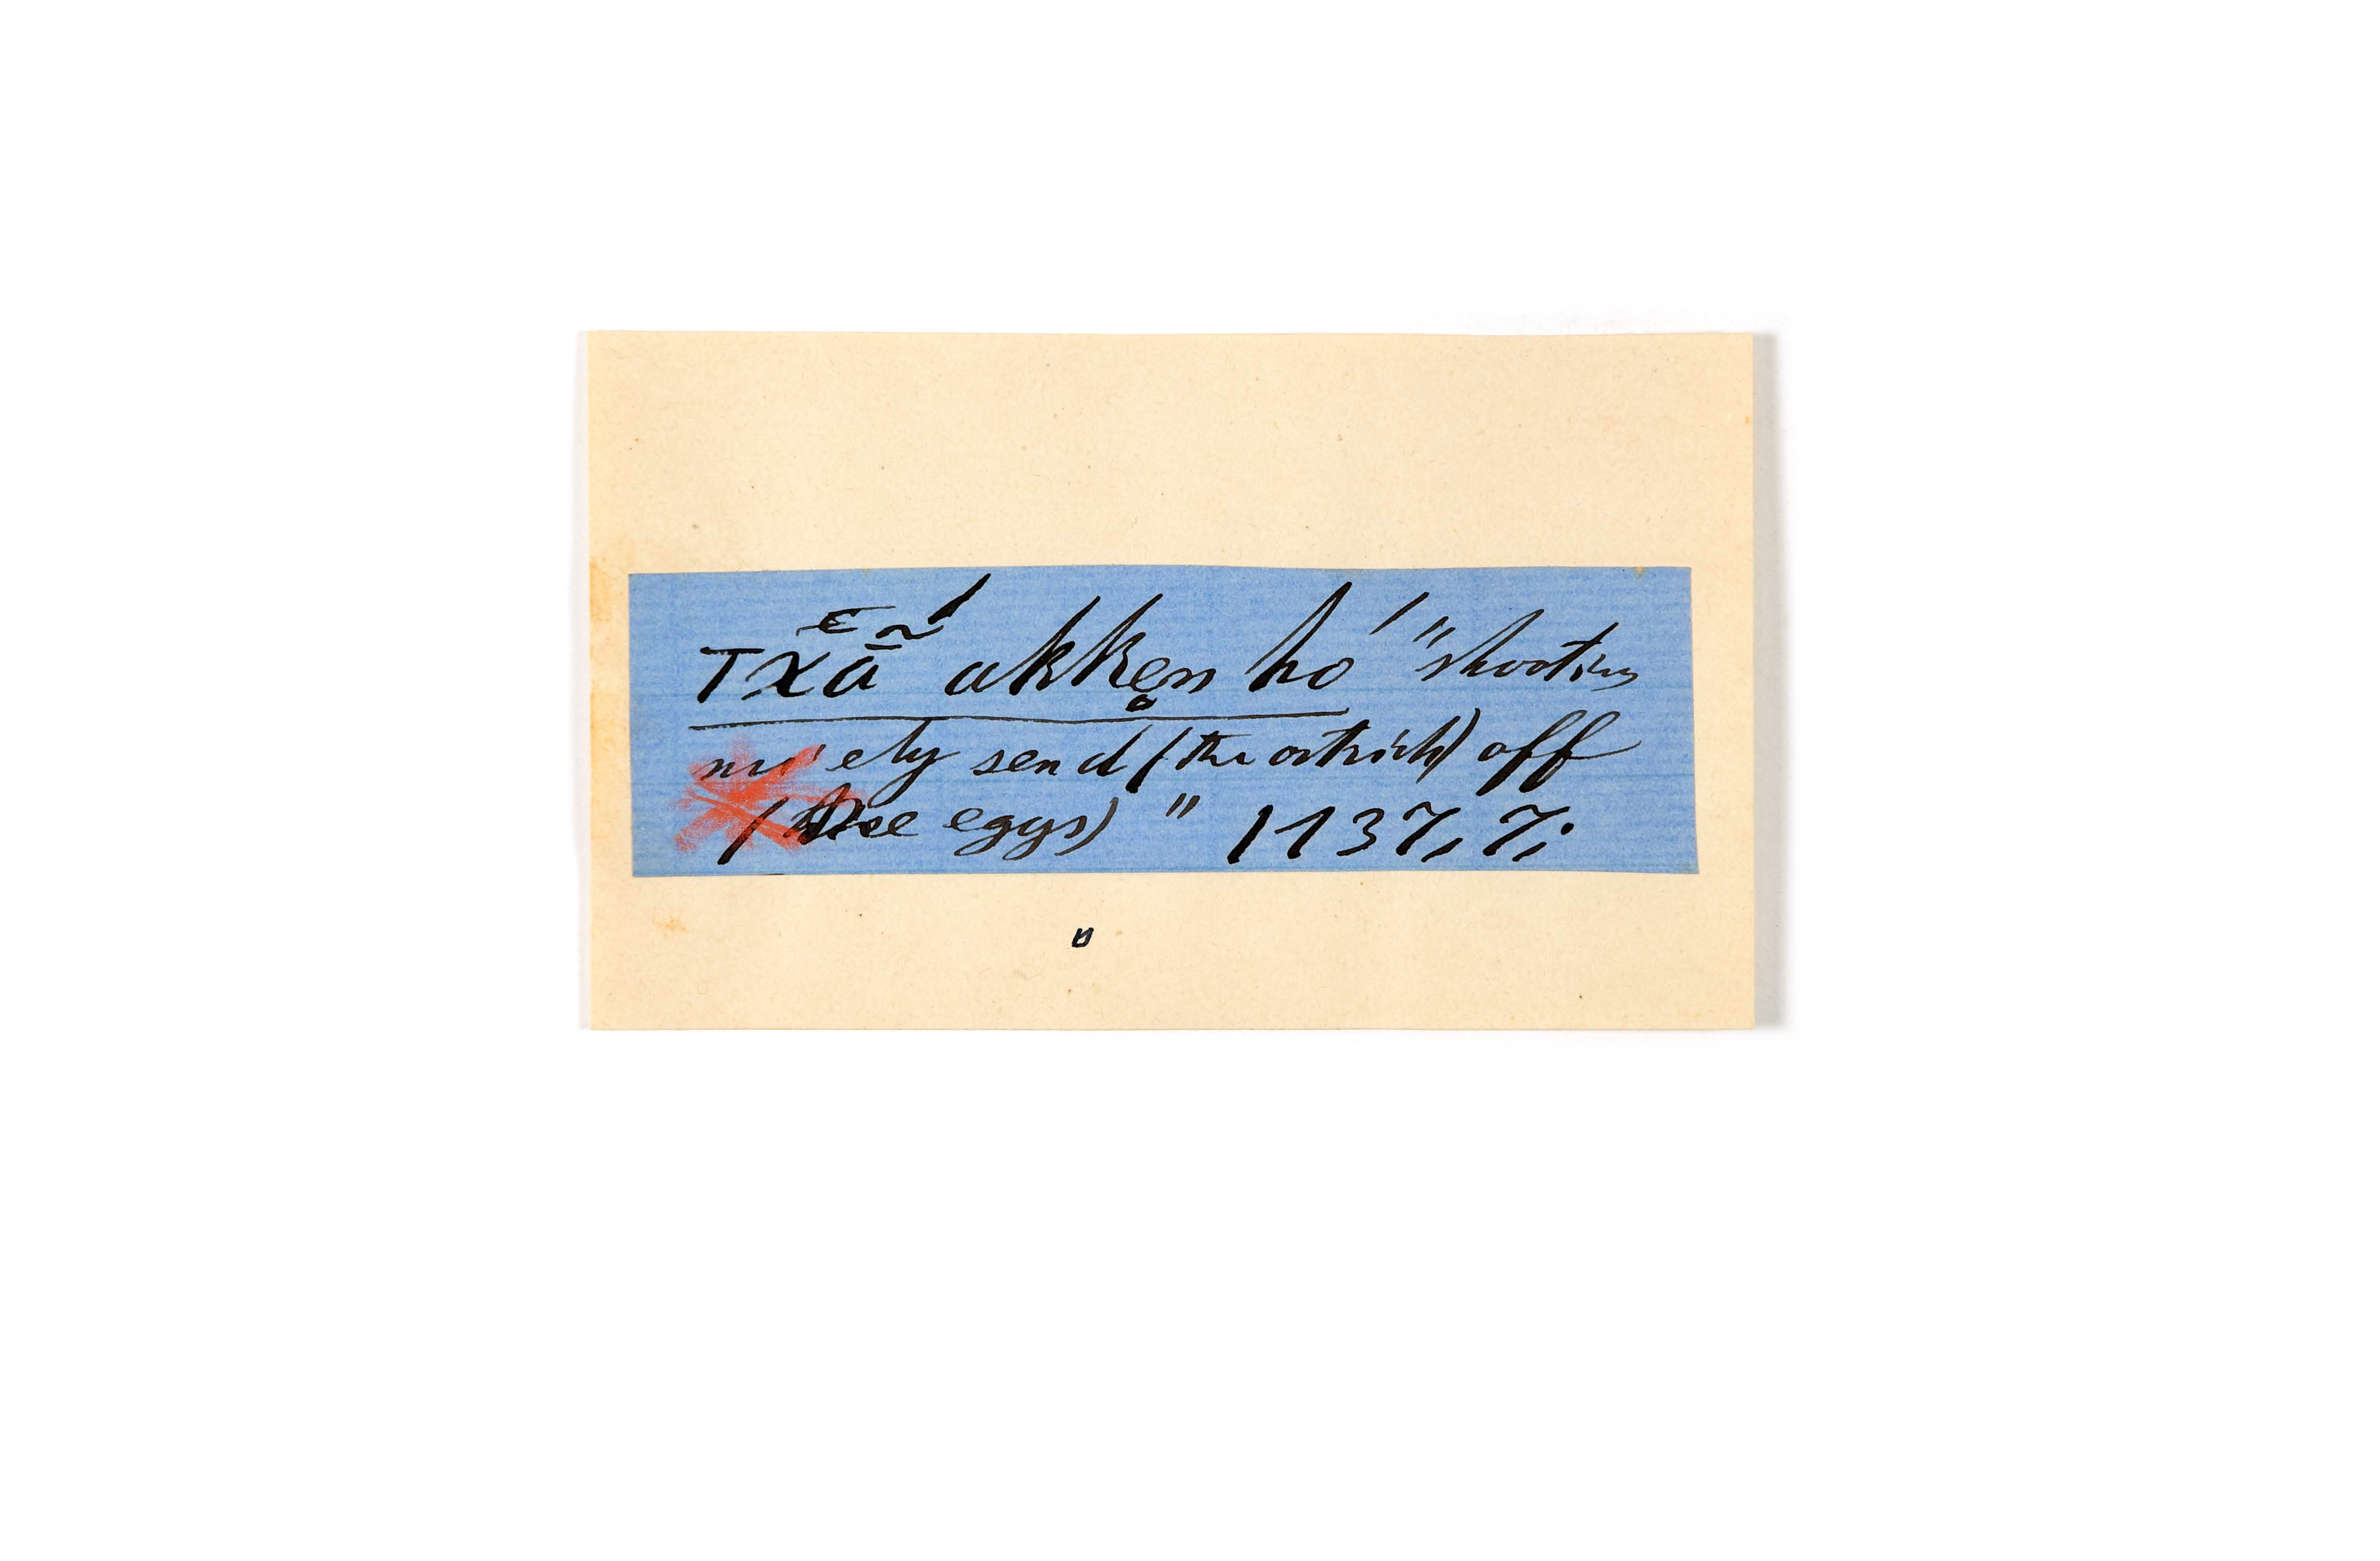 Txā̃́ akken̥ hó "shooting
nicely send (the ostrich) off
(the eggs)" 1137, 7.